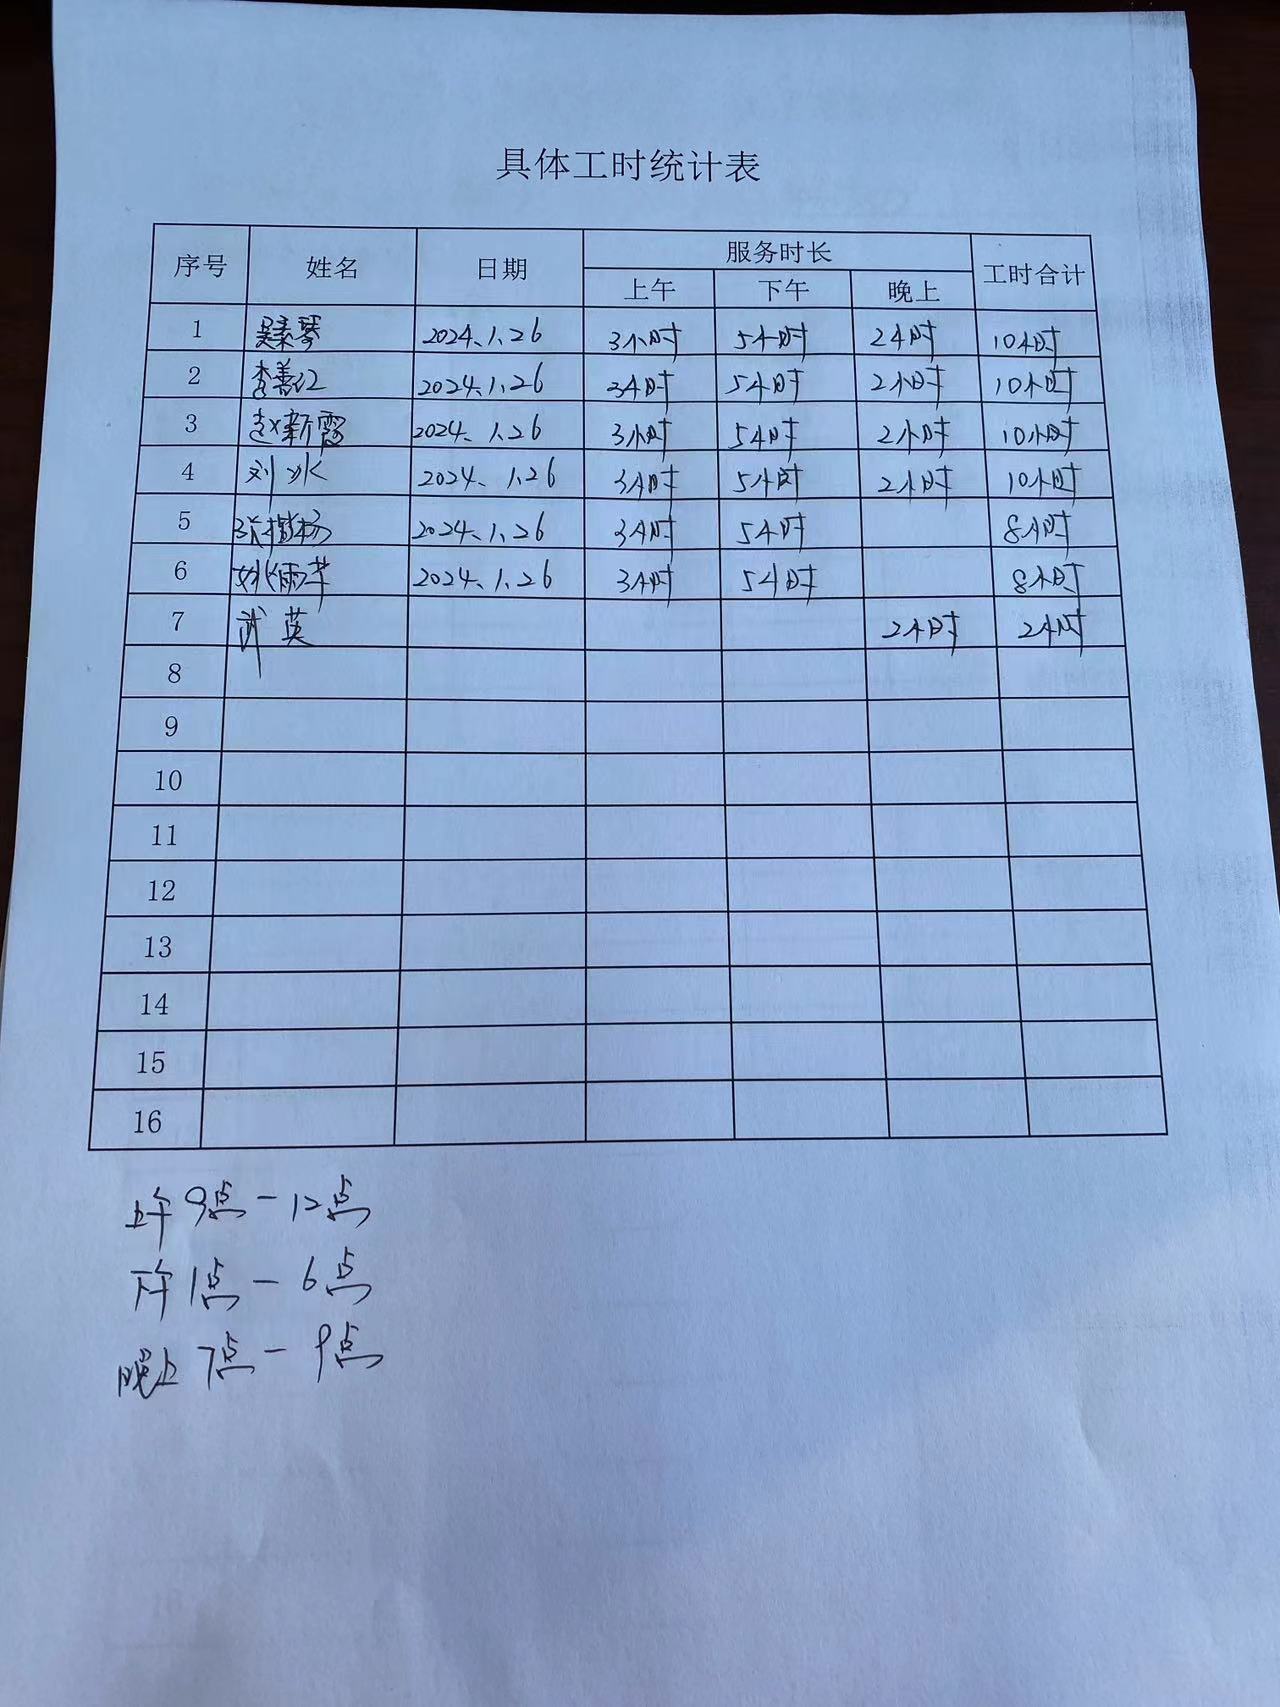 具体工时统计表
序号 姓名 日期 服务时长 工时合计
上午 下午 晚上
1 吴素琴 2024.1.26 3小时 5小时 2小时 10小时
2 李善红 2024.1.26 3小时 5小时 2小时 10小时
3 赵新霞 2024.1.26 3小时 5小时 2小时 10小时
4 刘冰 2024.1.26 3小时 5小时 2小时 10小时
5 张楷杨 2024.1.26 3小时 5小时 8小时
6 姚雨芊 2024.1.26 3小时 5小时 8小时
7 武英 2小时 2小时
8
9
10
11
12
13
14
15
16
上午9点-12点
下午1点-6点
晚上7点-9点